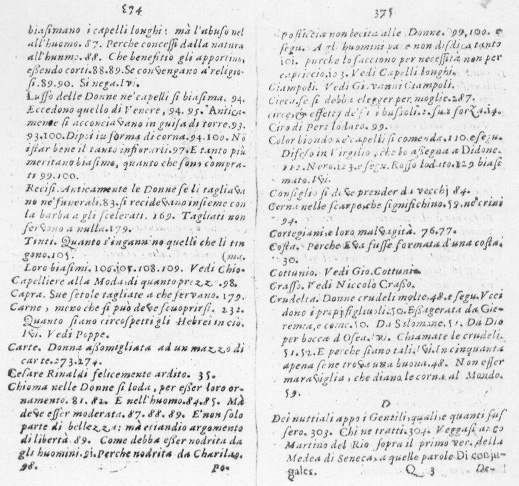 374
biasimano i capelli longhi: mà l'abuso nel
all'huomo. 87. Perche concessi dalla natura
all'huomo. 88. Che benefitio gli apportino,
essendo corti. 88.89. Se convengano a' religio-
si. 89.90. Si nega. Ivi.
Lusso delle Donne ne' capelli si biasima. 94.
Eccedono quello di Venere, 94. 95. Antica-
mente si acconciavano in guisa di torre. 93.
93.100. Dipoi in forma di corna. 94.100. Nõ
istar bene il tanto infiorarli. 97. E tanto più
meritano biasimo, quanto che sono compra-
ti 99.100.
Recisi. Anticamente le Donne se li tagliava
no ne' funerali. 83. si recidevano insieme con
la barba a gli scelerati. 169. Tagliati non
servono a nulla. 179.
Tinti. Quanto s'ingannino quelli che li tin
gono. 105. (ma.
Loro biasimi. 106.107. 108.109. Vedi Chio-
Capelliere alla Moda; di quanto prezzo. 98.
Capra. Sue setole tagliate a che servano. 179.
Carne, meno che si può deve scuoprirsi. 232.
Quanto siano circospetti gli Hebrei in ciò.
Ivi. Vedi Poppe.
Carte. Donna assomigliata ad un mazzo di
carte. 273.274.
Cesare Rinaldi felicemente ardito. 35.
Chioma nelle Donne si loda, per esser loro or-
namento. 81.82. E nell'huomo. 84.85. Mà
deve esser moderata. 87. 88. 89. E' non solo
parte di bellezza: mà etiandio argomento
di libertà. 89. Come debba esser nodrita da
gli huomini. Ivi. Perche nodrita da Charilao.
98. Po-
375
Posticcia non lecita alle Donne. 99.100. e
segu. A gli huomini pare non disdica tanto
101. purche lo facciano per necessità non per
capriccio. 103. Vedi Capelli longhi.
Ciampoli. Vedi Gio vanni Ciampoli.
Cieca, se si debba elegger per moglie. 287.
Circe, suoi effetti
Ciro di Pers lodato. 99.
Color biondo ne' capelli si comenda. 110. e segu.
Difeso in Virgilio, che lo assegna a Didone.
112. Nero. 123. e segu. Rosso lodato. 129 biasi-
mato. Ivi.
Consiglio si deve prender da' vecchi 84.
Corna nelle scarpe, che significhino. 59. ne' crini
94.
Cortegiani, e loro malvagità. 76.77.
Costa. Perche Eva fusse formata d'una costa.
30.
Cottunio. Vedi Gio. Cottunio.
Crasso. Vedi Niccolo Crasso.
Crudeltà. Donne crudeli molto. 48. e segu. Ucci
dono i proprij figliuoli. 50. Essagerata da Gie-
remia, e come. 50. Da Salomone. 51. Da Dio
per bocca d'Osea. Ivi. Chiamate le crudeli.
51.52. E perche siano tali. Ivi. In cinquanta
apena se ne trova una buona. 48. Non esser
maraviglia, che diano le corna al Mondo.
59.
D
Dei nuttiali appo i Gentili, quali, e quanti fus
sero. 303. Chi ne tratti. 304. Veggasi, anco
Martino del Rio sopra il primo ver. della
Medea di Seneca, a quelle parole Di conju-
gales. Q 3 De-